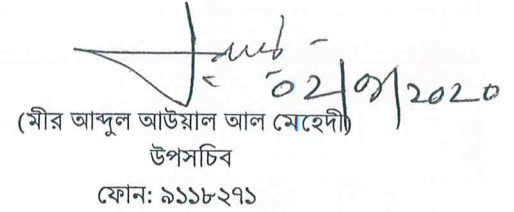 ০২/০৯/২০২০
(মীর আব্দুল আউয়াল আল মেহেদী)
উপসচিব
ফোন: ৯১১৮২৭১